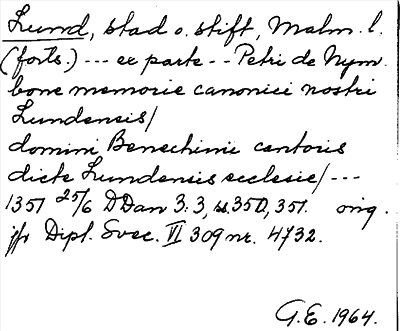 Lund, stad o. stift, Malm. l.
(forts.) --- ex parte -- Petri de Nym.
bone memorie canonici nostri
Lundensis/
domini Benechini cantoris
dicte Lundensis ecclesie/ ---
1351 25/6 DDan 3:3, s. 350, 351. orig.
jfr Dipl. Svec. VI 309 nr. 4732.
G.E. 1964.